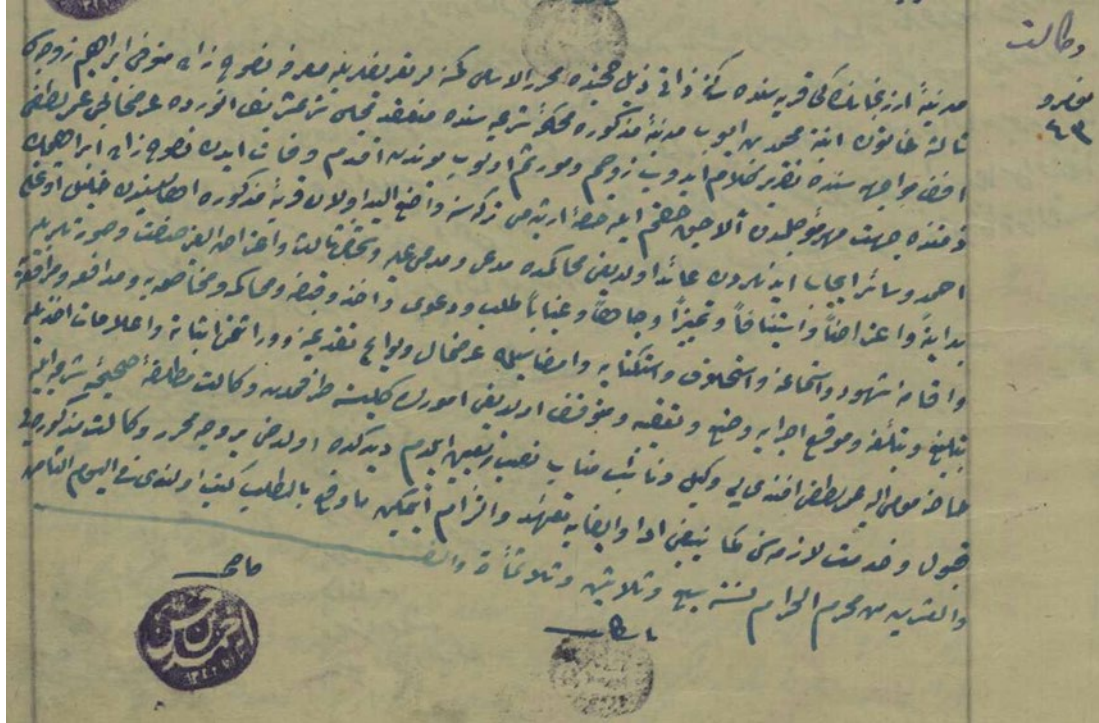 وكالت
نومرو
٤٣
مدينۀ ارزنجانك قريه سنده ساكنه ذاتى ذيل حجتده محرر الاسامى كمسنه لر تعريفلريله معرفه نصوح زاده متوفى ابراهيم زوجه سى
ثالثه خاتون ابنة محمد بن ايوب مدينۀ مذكوره محكمۀ شرعيه سنده منعقد مجلس شرع شريف انورده عرضحالجى عمر لطفى
افندى مواجهه سنده تقرير كلام ايدوب زوجم ومورثم اولوب بوندن اقدم وفات ايدن نصوح زاده ابراهيمك
ذمتنده جهت مهر مؤجلدن آلاجق حقم ايله حصۀ ارثيه مى تركه سنه واضع اليد اولان قريۀ مذكوره اهاليسندن خليل اوغلى
احمد وسائر ايجاب ايدنلردن عائد اولديغى محاكمده مدعى ومدعى عليه وشخص ثالث واعتراض الغير صفت وصورتلريله
بدايةً واعتراضاً واستينافاً وتمييزاً وجاهاً وغياباً طلب ودعوى واخذ وقبضه ومحاكمه ومخاصمه يه ومدافعه ومرافعه
واقامۀ شهود واستماعه واستحلاف واستكتابه وامضاسيله عرضحال ولوايح تقديمنه اثباته واعلامات اخذيله
تبليغ وتبلغه وموقع اجرايه وضع وتعقيبه ومتوقف اولديغى امورك كليسنه طرفمدن وكالت مطلقۀ صحيحۀ شرعيه ايله
مومى اليه عمر لطفى افندى يى وكيل ونائب مناب نصب وتعيين ايلدم ديدكده اولدخى بر وجه محرر وكالت مذكوره يى
قبول وخدمت لازمه سنى كما ينبغى ادا وايفايه تعهد والتزام ايتمكين ما وقع بالطلب كتب اولندى فى اليوم الثامن
والعشرين من محرم الحرام لسنة سبع وثلاثين وثلثمأة والف